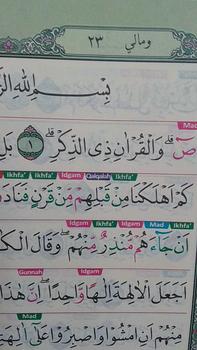 ومالي ٢٣
بِسْمِ اللهِ
Mad
صۤ ۚ وَالْقُرْاٰنِ ذِى الذِّكْرِۗ ١ بَلِ
Ikhfa' Ikhfa' Idgam Qalqalah Ikhfa'
كَمْ اَهْلَكْنَا مِنْ قَبْلِهِمْ مِّنْ قَرْنٍ فَنَادَ
Idgam Ikhfa' Idgam Mad Ikhfa'
اَنْ جَاۤءَهُمْ مُّنْذِرٌ مِّنْهُمْ ۖ وَقَالَ الْك
Gunnah Idgam
اَجَعَلَ الْاٰلِهَةَ اِلٰهًا وَّاحِدًا ۖ اِنَّ هٰذَا
Mad
مِنْهُمْ اَنِ امْشُوْا وَاصْبِرُوْا عَلٰٓى اٰلِهَ